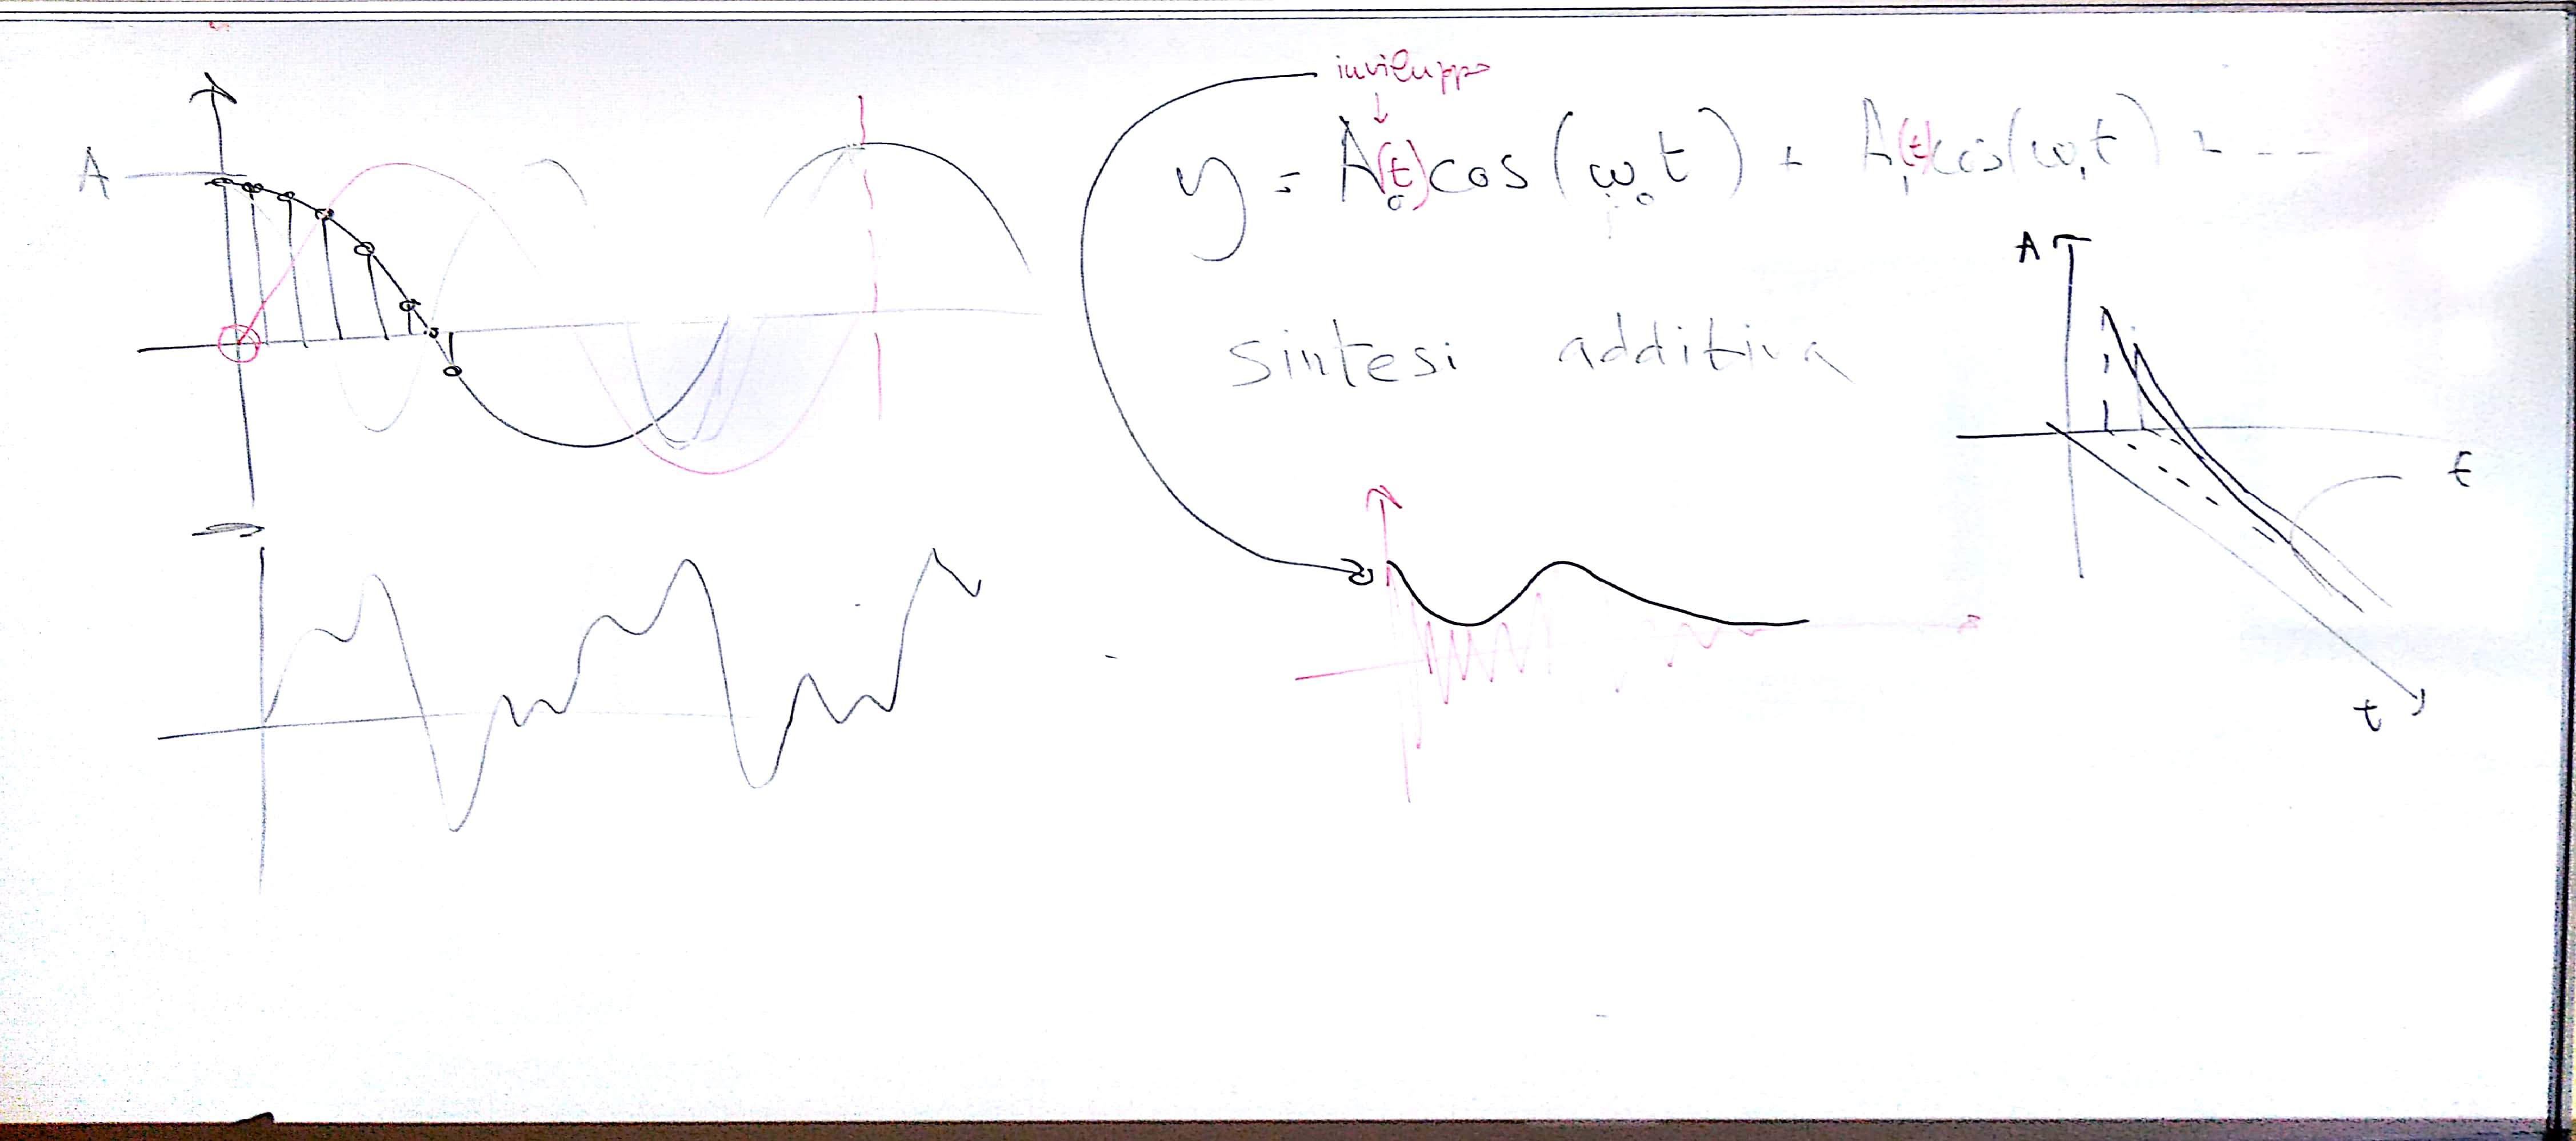 inviluppo
↓
A
y = A₀(t) cos(ω₀t) + A₁(t) cos(ω₁t) + ---
A
sintesi additiva
t